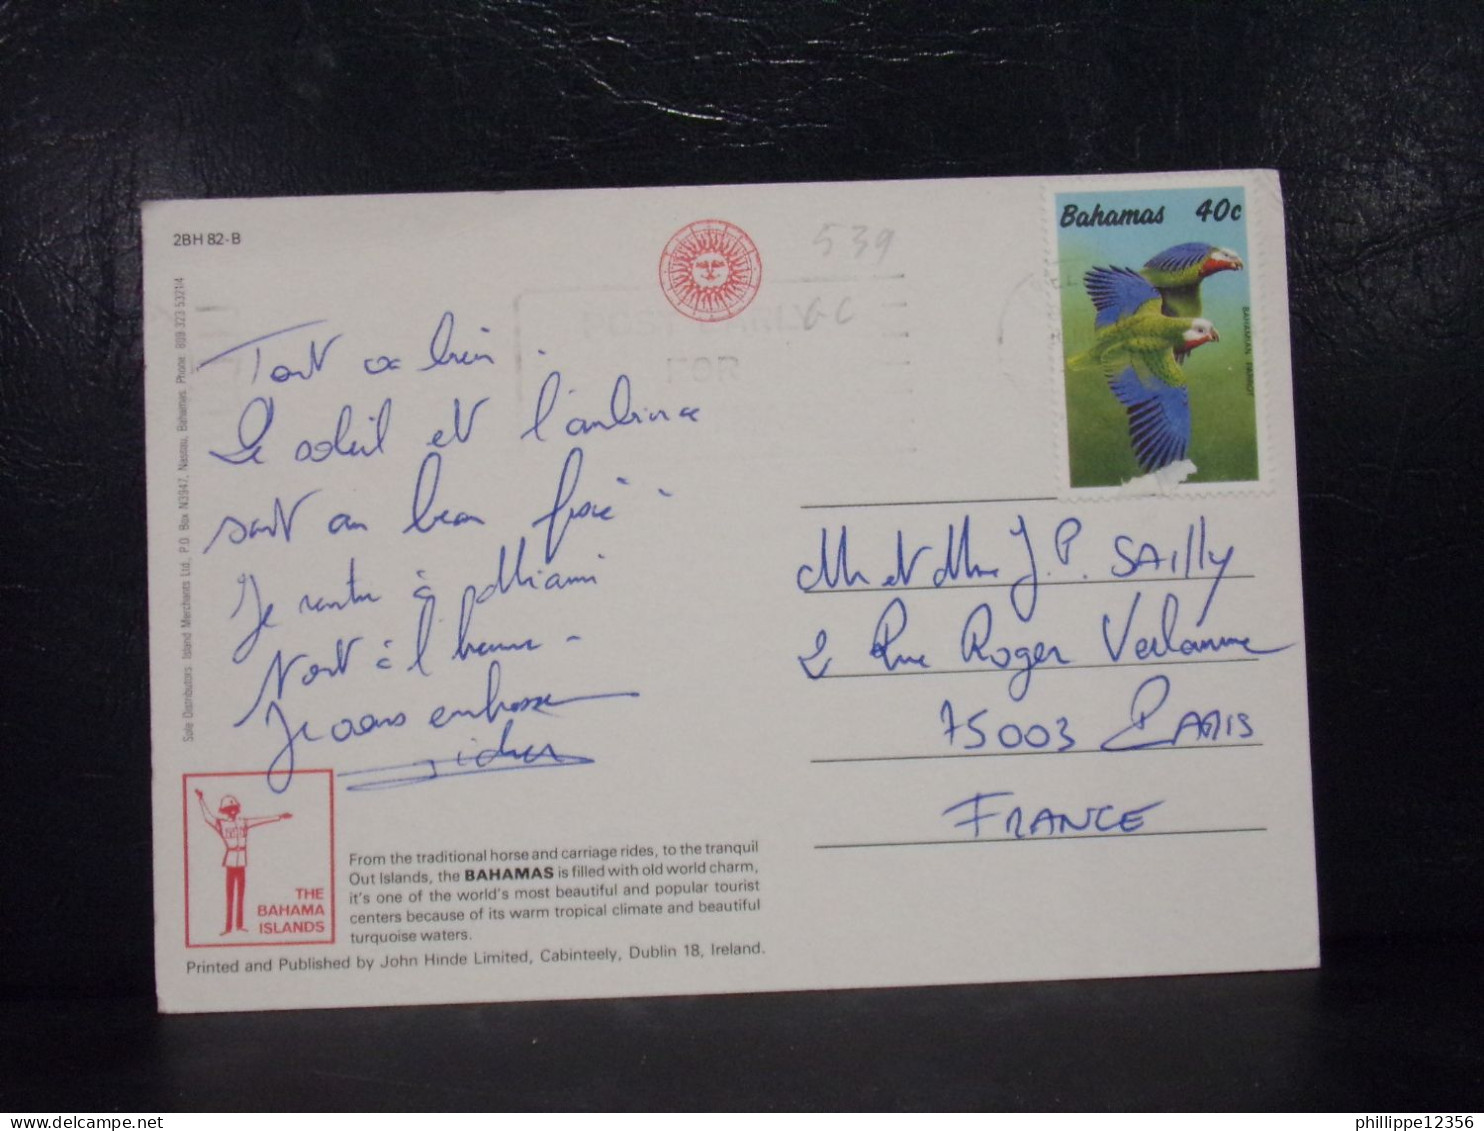 2BH 82-B
539
GC
Bahamas 40c
BAHAMIAN PARROT
FOR
Tout va bien.
Le soleil et l'ambiance
sont au beau fixe.
Je rentre à Miami
tout à l'heure.
Je vous embrasse
Mr et Mme J.P. SAILLY
2 Rue Roger Verlomme
75003 PARIS
FRANCE
Sole Distributors: Island Merchants Ltd., P.O. Box N3947, Nassau, Bahamas. Phone: 809-323-5321/4
THE
BAHAMA
ISLANDS
From the traditional horse and carriage rides, to the tranquil
Out Islands, the BAHAMAS is filled with old world charm,
it's one of the world's most beautiful and popular tourist
centers because of its warm tropical climate and beautiful
turquoise waters.
Printed and Published by John Hinde Limited, Cabinteely, Dublin 18, Ireland.
phillippe12356